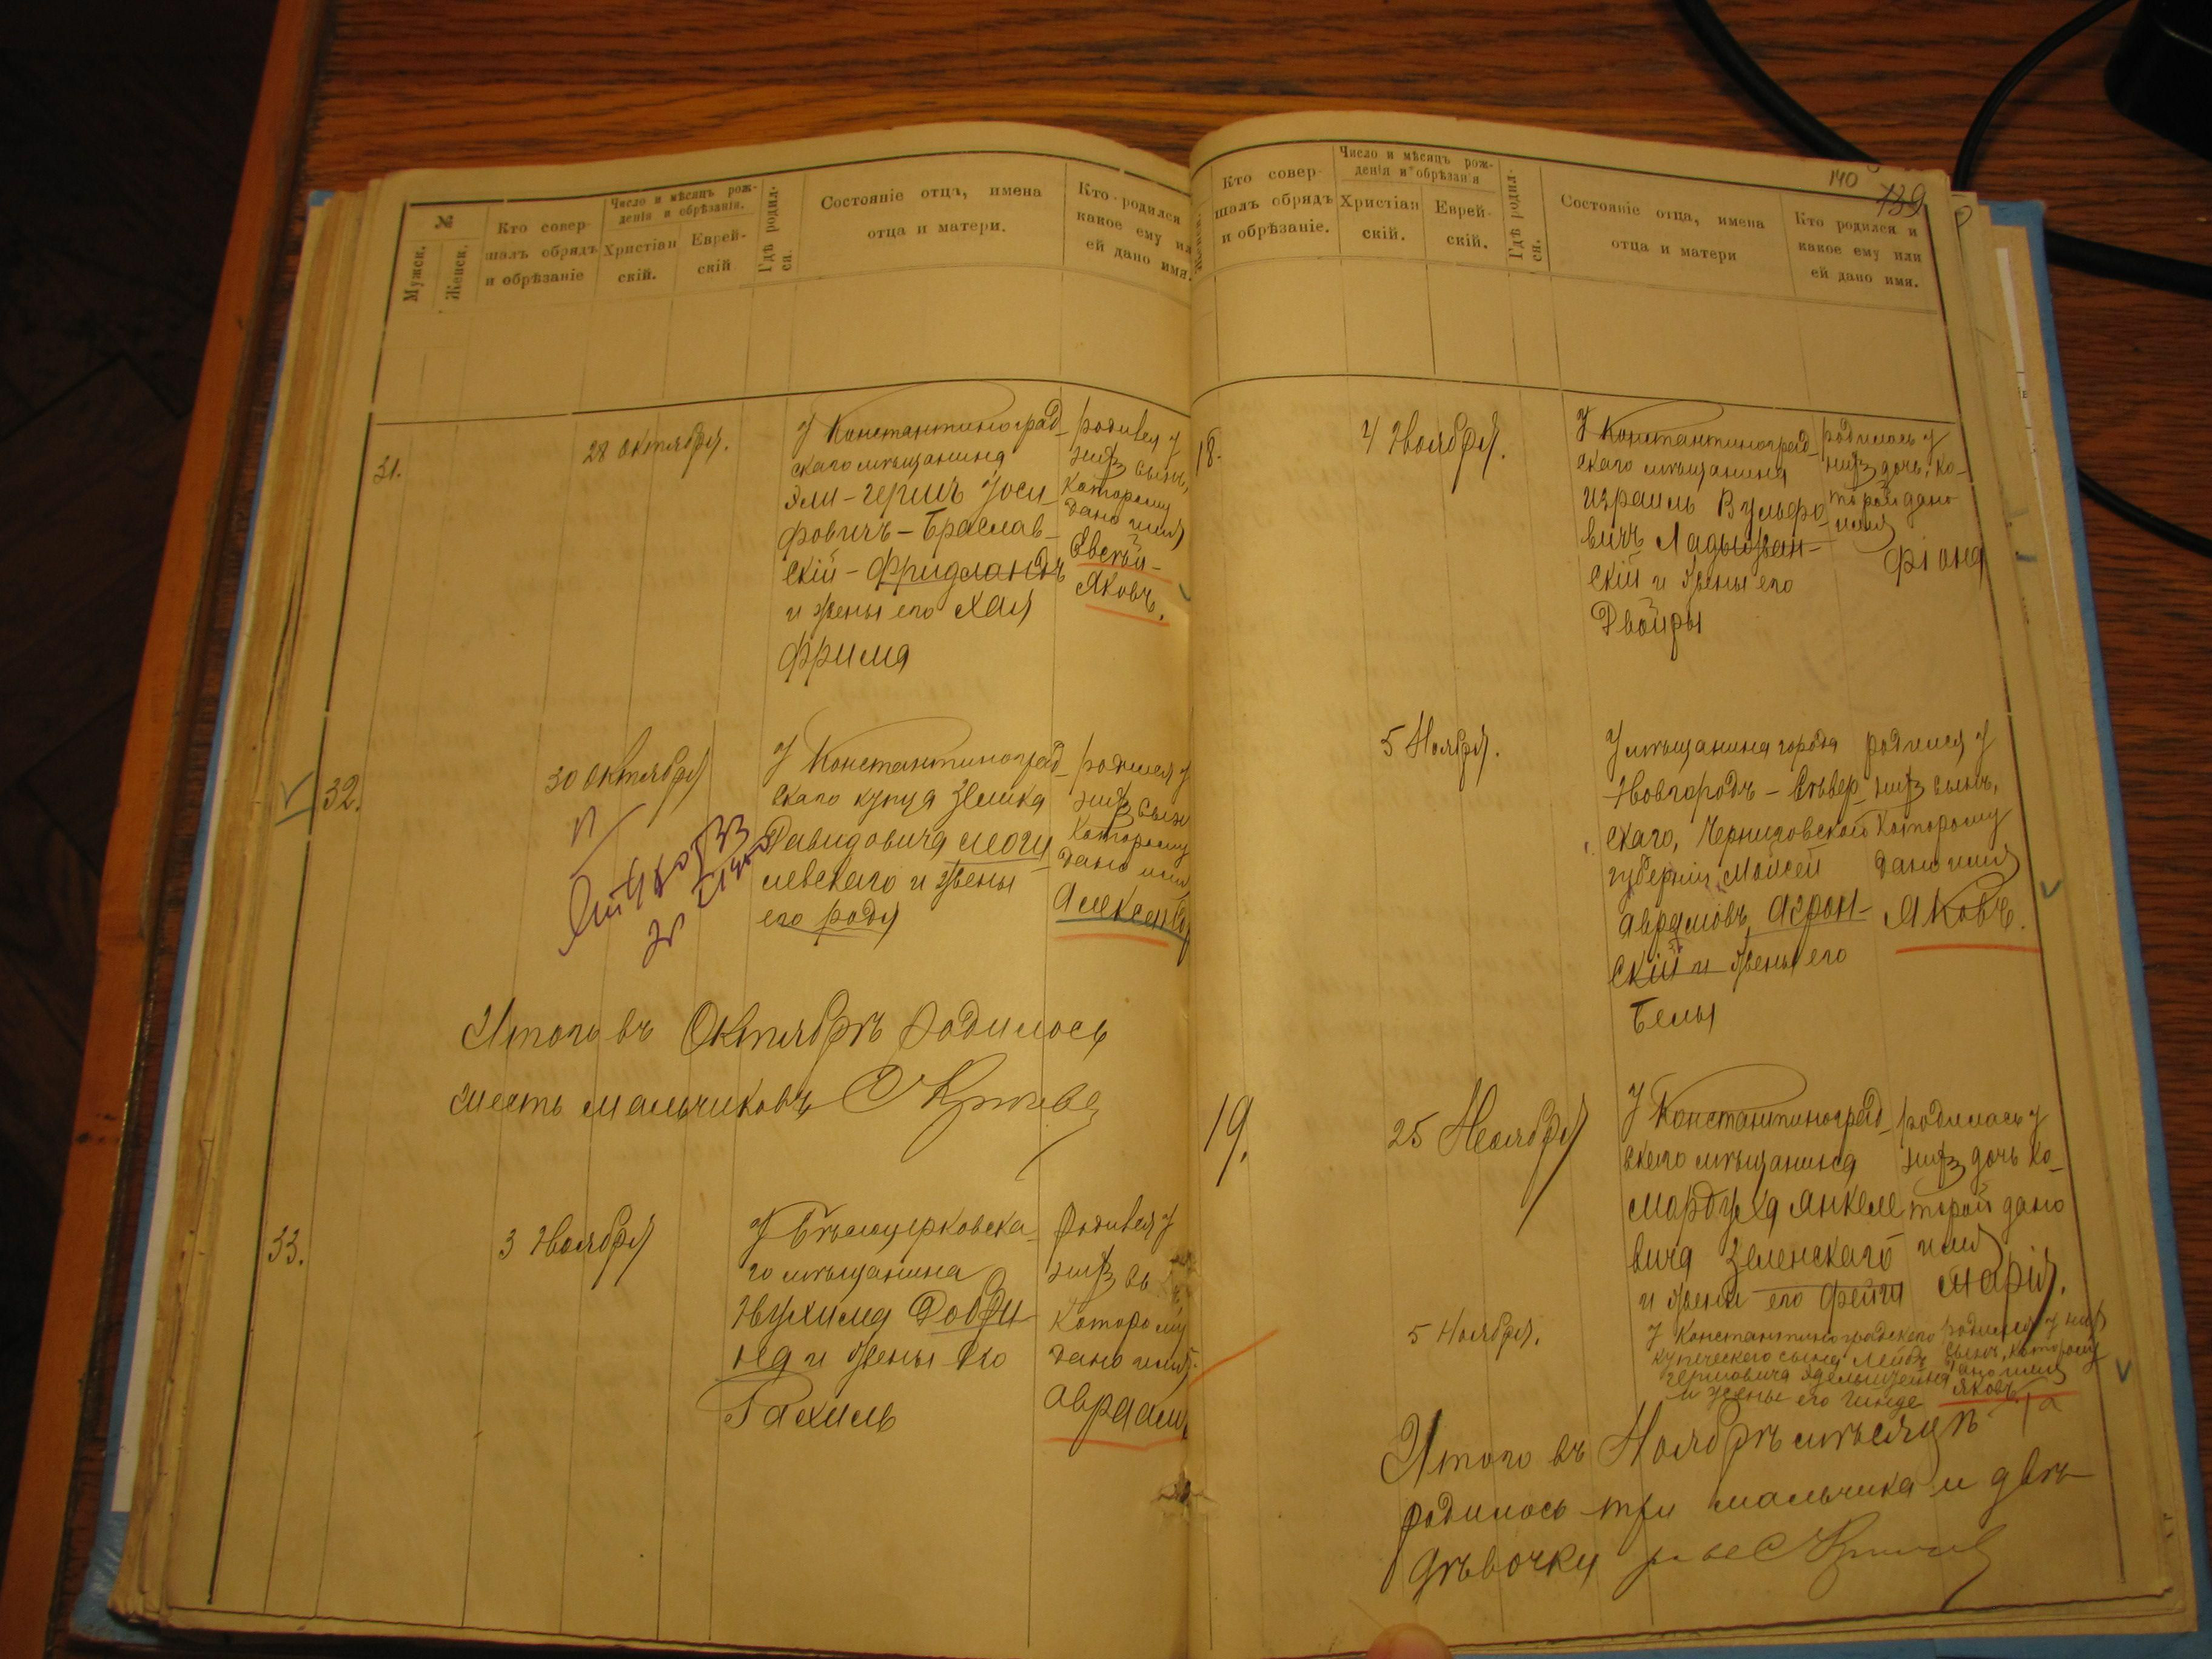 №
Мужск.
Женск.
Кто совер-
шалъ обрядъ
и обрѣзаніе
Число и мѣсяцъ рож-
денія и обрѣзанія.
Христіан
скій.
Еврей-
скій
Гдѣ родил-
ся.
Состояніе отца, имена
отца и матери.
Кто родился
какое ему или
ей дано имя.
31.
28 Октября.
У Константиноград-
скаго мѣщанина
Эли-Гершъ Іоси-
фовичъ-Браслав-
скій-Фридландъ
и жены его Хая
Фрима
родился у
нихъ сынъ,
которому
дано имя
Евсѣй-
Яковъ.
32.
30 Октября
У Константиноград-
скаго купца Зелика
Давидовича Моги-
левскаго и жены
его рода
родился у
нихъ сынъ
которому
дано имя
Александ
Итого въ Октябрѣ родилось
шесть мальчиковъ
33.
3 Ноября
У Бѣлоцерковска-
го мѣщанина
Нухима Добри-
на и жены его
Рахиль
родился у
нихъ
которому
дано имя
Авраам
140
139
Кто совер-
шалъ обрядъ
и обрѣзаніе.
Число и мѣсяцъ рож-
денія и обрѣзанія
Христіан
скій.
Еврей-
скій.
Гдѣ родил-
ся.
Состояніе отца, имена
отца и матери
Кто родился и
какое ему или
ей дано имя.
18.
4 Ноября.
У Константиноград-
скаго мѣщанина
Израиль Вульфо-
вичъ Ладыжан-
скій и жены его
Двойры
родилась у
нихъ дочь, ко-
торой дано
имя
Фіона
5 Ноября.
У мѣщанина города
Новгородъ-Сѣвер-
скаго, Черниговской
губерніи Мойсей
Аврамовъ Агрон-
скій и жены его
Белы
родился у
нихъ сынъ,
которому
дано имя
Яковъ.
19.
25 Ноября
У Константиноград-
скаго мѣщанина
Мордуха Янкеле-
вича Зеленскаго
и жены его Фейги
родилась у
нихъ дочь ко-
торой дано
имя
Марія.
5 Ноября.
У Константиноградскаго
купеческаго сына Лейбъ
Гершовича Эдельштейна
и жены его Гинде
родился у нихъ
сынъ, которому
дано имя
Яковъ
Итого въ Ноябрѣ мѣсяцѣ
родилось три мальчика и двѣ
дѣвочки